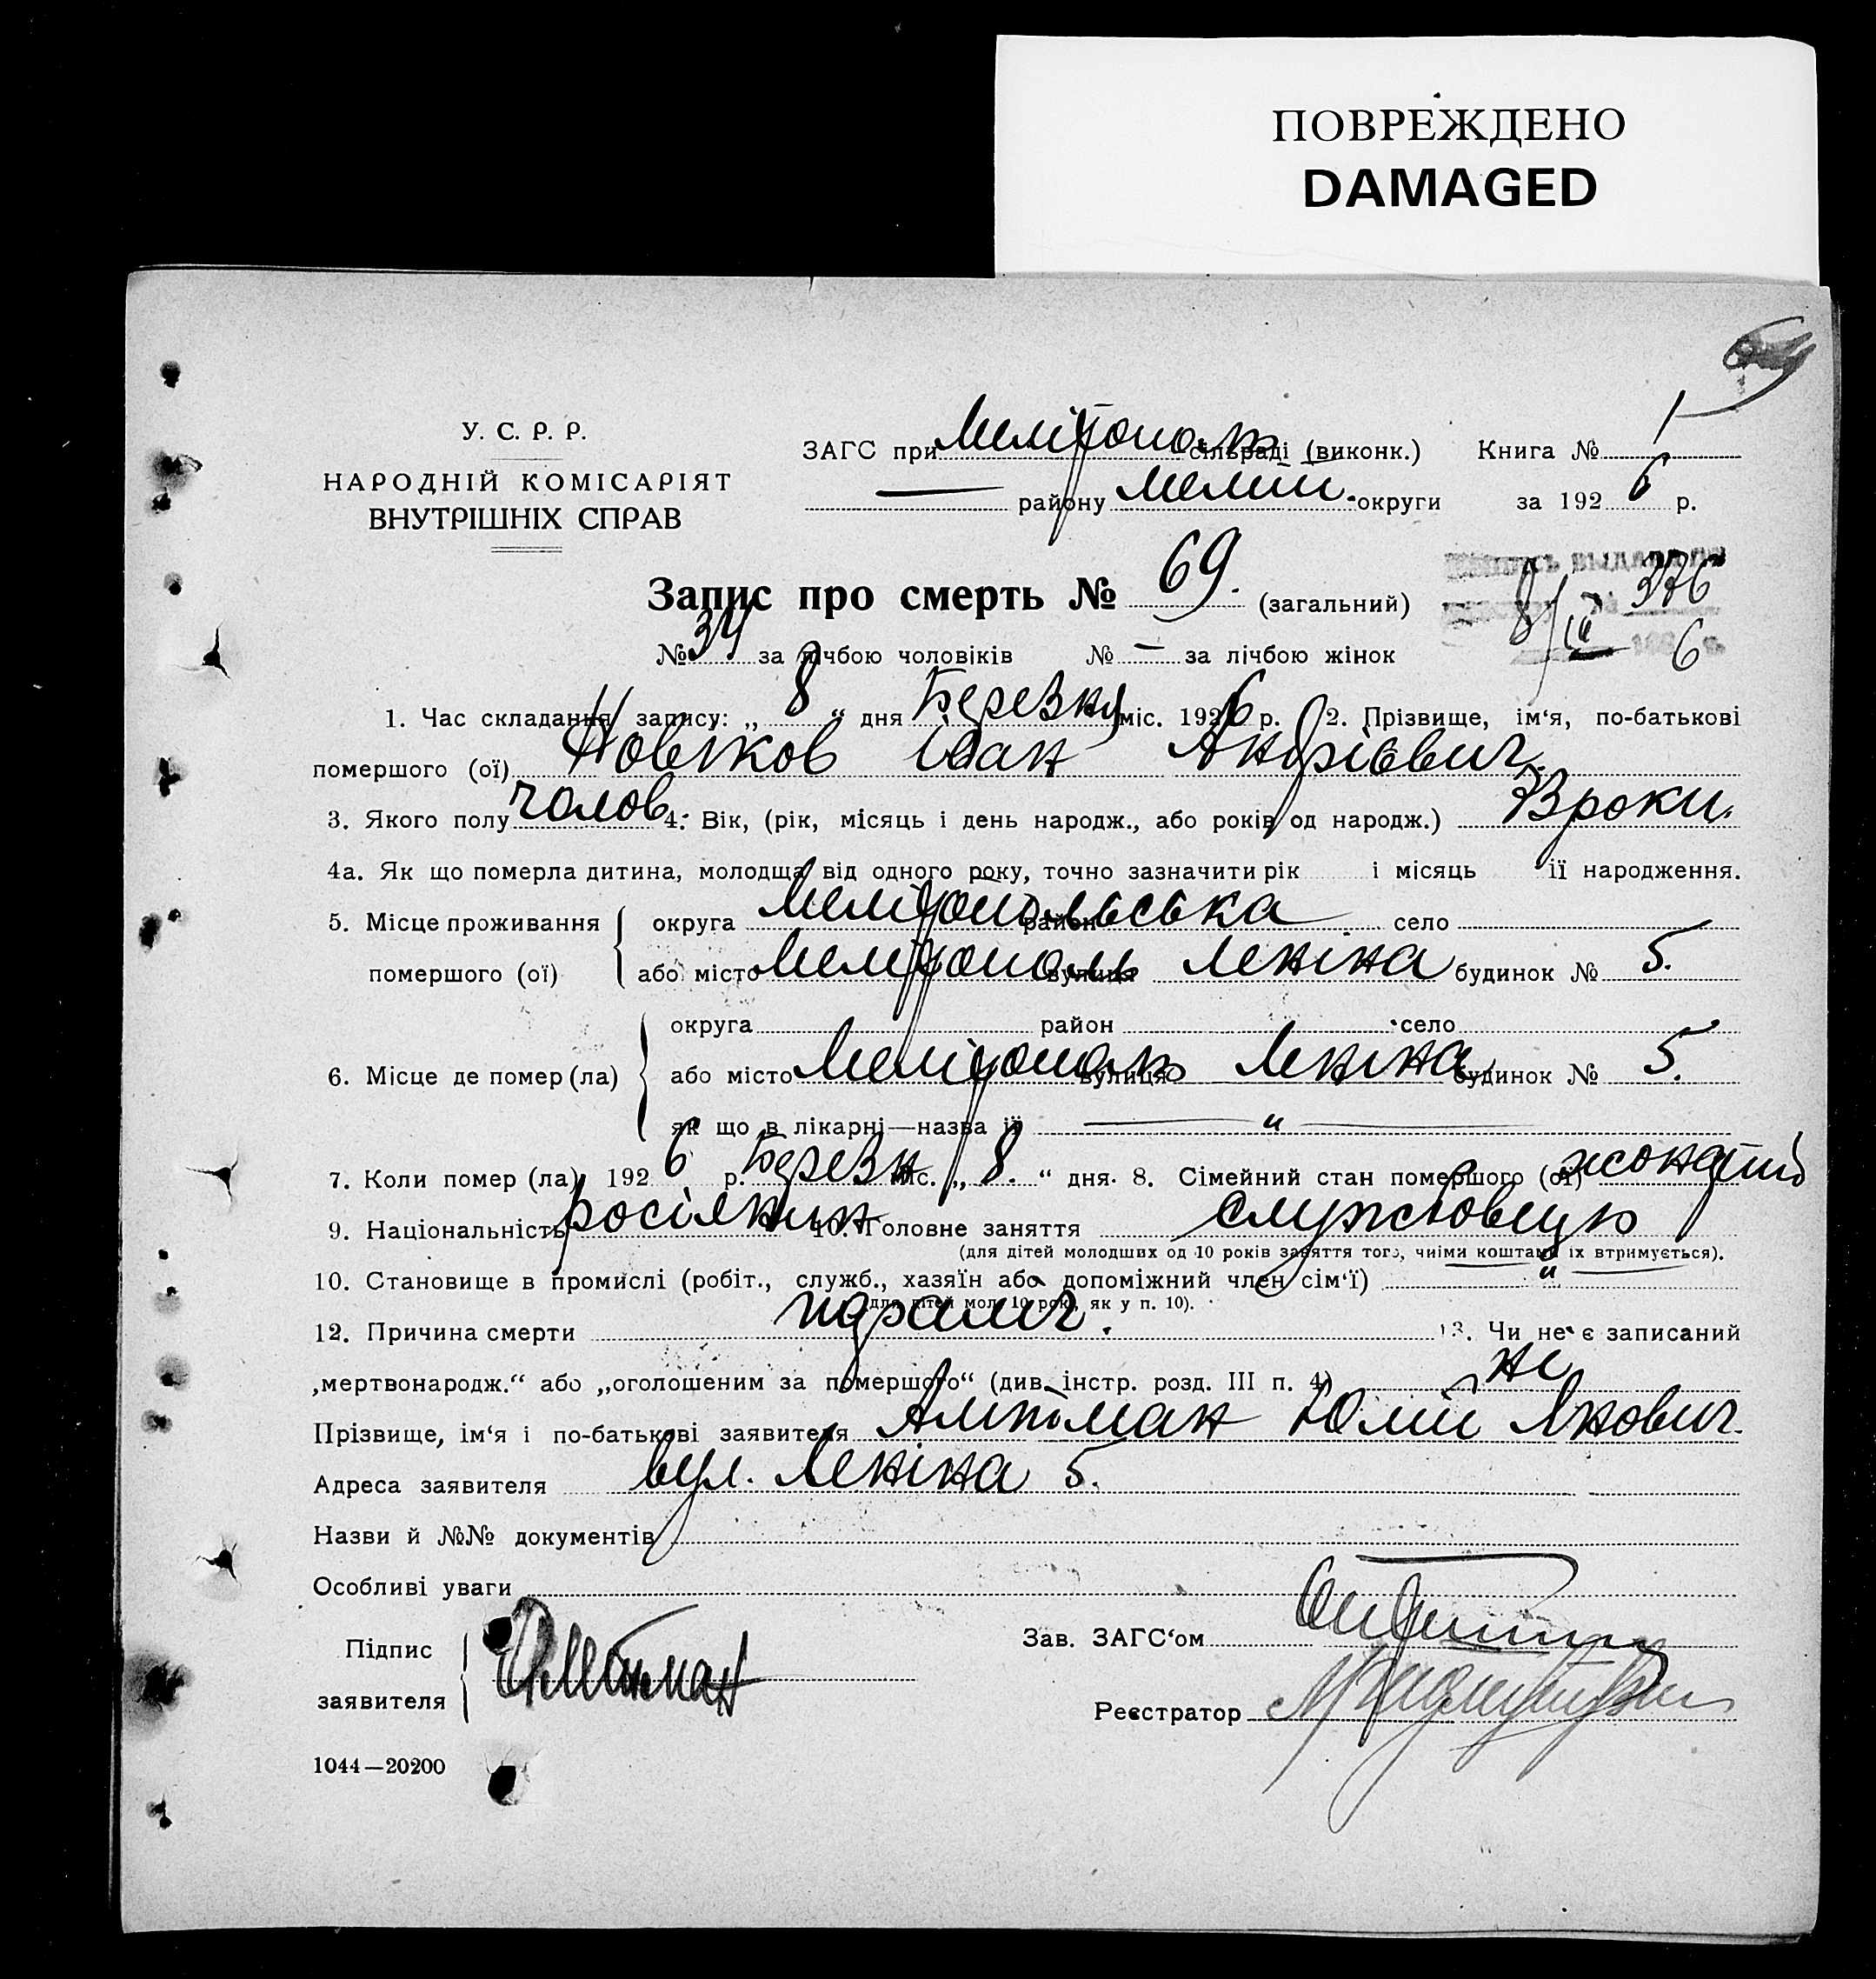 ПОВРЕЖДЕНО
DAMAGED
У. С. Р. Р.
НАРОДНІЙ КОМІСАРІЯТ
ВНУТРІШНІХ СПРАВ
ЗАГС при Мелітополь сільраді (виконк.) Книга № 1
— району Меліт. округи за 1926 р.
Запис про смерть № 69. (загальний)
376
№ 34 за лічбою чоловіків № — за лічбою жінок
6
1. Час складання запису: „ 8 “ дня Березня міс. 1926 р. 2. Прізвище, ім'я, по-батькові
помершого (ої) Новіков Іван Андрієвич
3. Якого полу чолов 4. Вік, (рік, місяць і день народж., або років од народж.) роки.
4а. Як що померла дитина, молодща від одного року, точно зазначити рік і місяць її народження.
5. Місце проживання округа Мелітопольська район село
помершого (ої) або місто Мелітополь вулиця Леніна будинок № 5.
округа район село
6. Місце де помер (ла) або місто Мелітополь вулиця Леніна будинок № 5.
як що в лікарні—назва її — „ —
7. Коли помер (ла) 1926 р. Березн міс. „ 8. “ дня. 8. Сімейний стан помершого (ої) жонатий
9. Національність росіянин 10. Головне заняття службовець
(для дітей молодших од 10 років заняття того, чиїми коштами їх втримується).
10. Становище в промислі (робіт., служб., хазяїн або допоміжний член сім'ї) „
(для дітей мол. 10 рок., як у п. 10).
12. Причина смерти параліч. 13. Чи не є записаний
„мертвонародж.“ або „оголошеним за помершого“ (див. інстр. розд. III п. 4) не
Прізвище, ім'я і по-батькові заявителя Альтман Юлій Якович.
Адреса заявителя вул. Леніна 5.
Назви й №№ документів
Особливі уваги
Підпис Зав. ЗАГС'ом
заявителя
Реєстратор
1044—20200